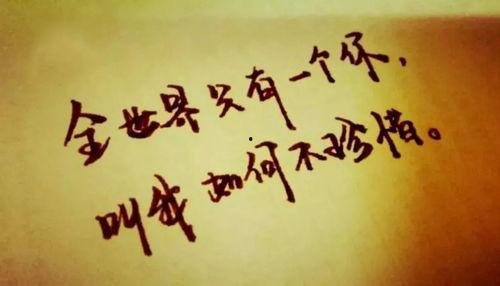 全世界只有一个你,
叫我如何不珍惜。